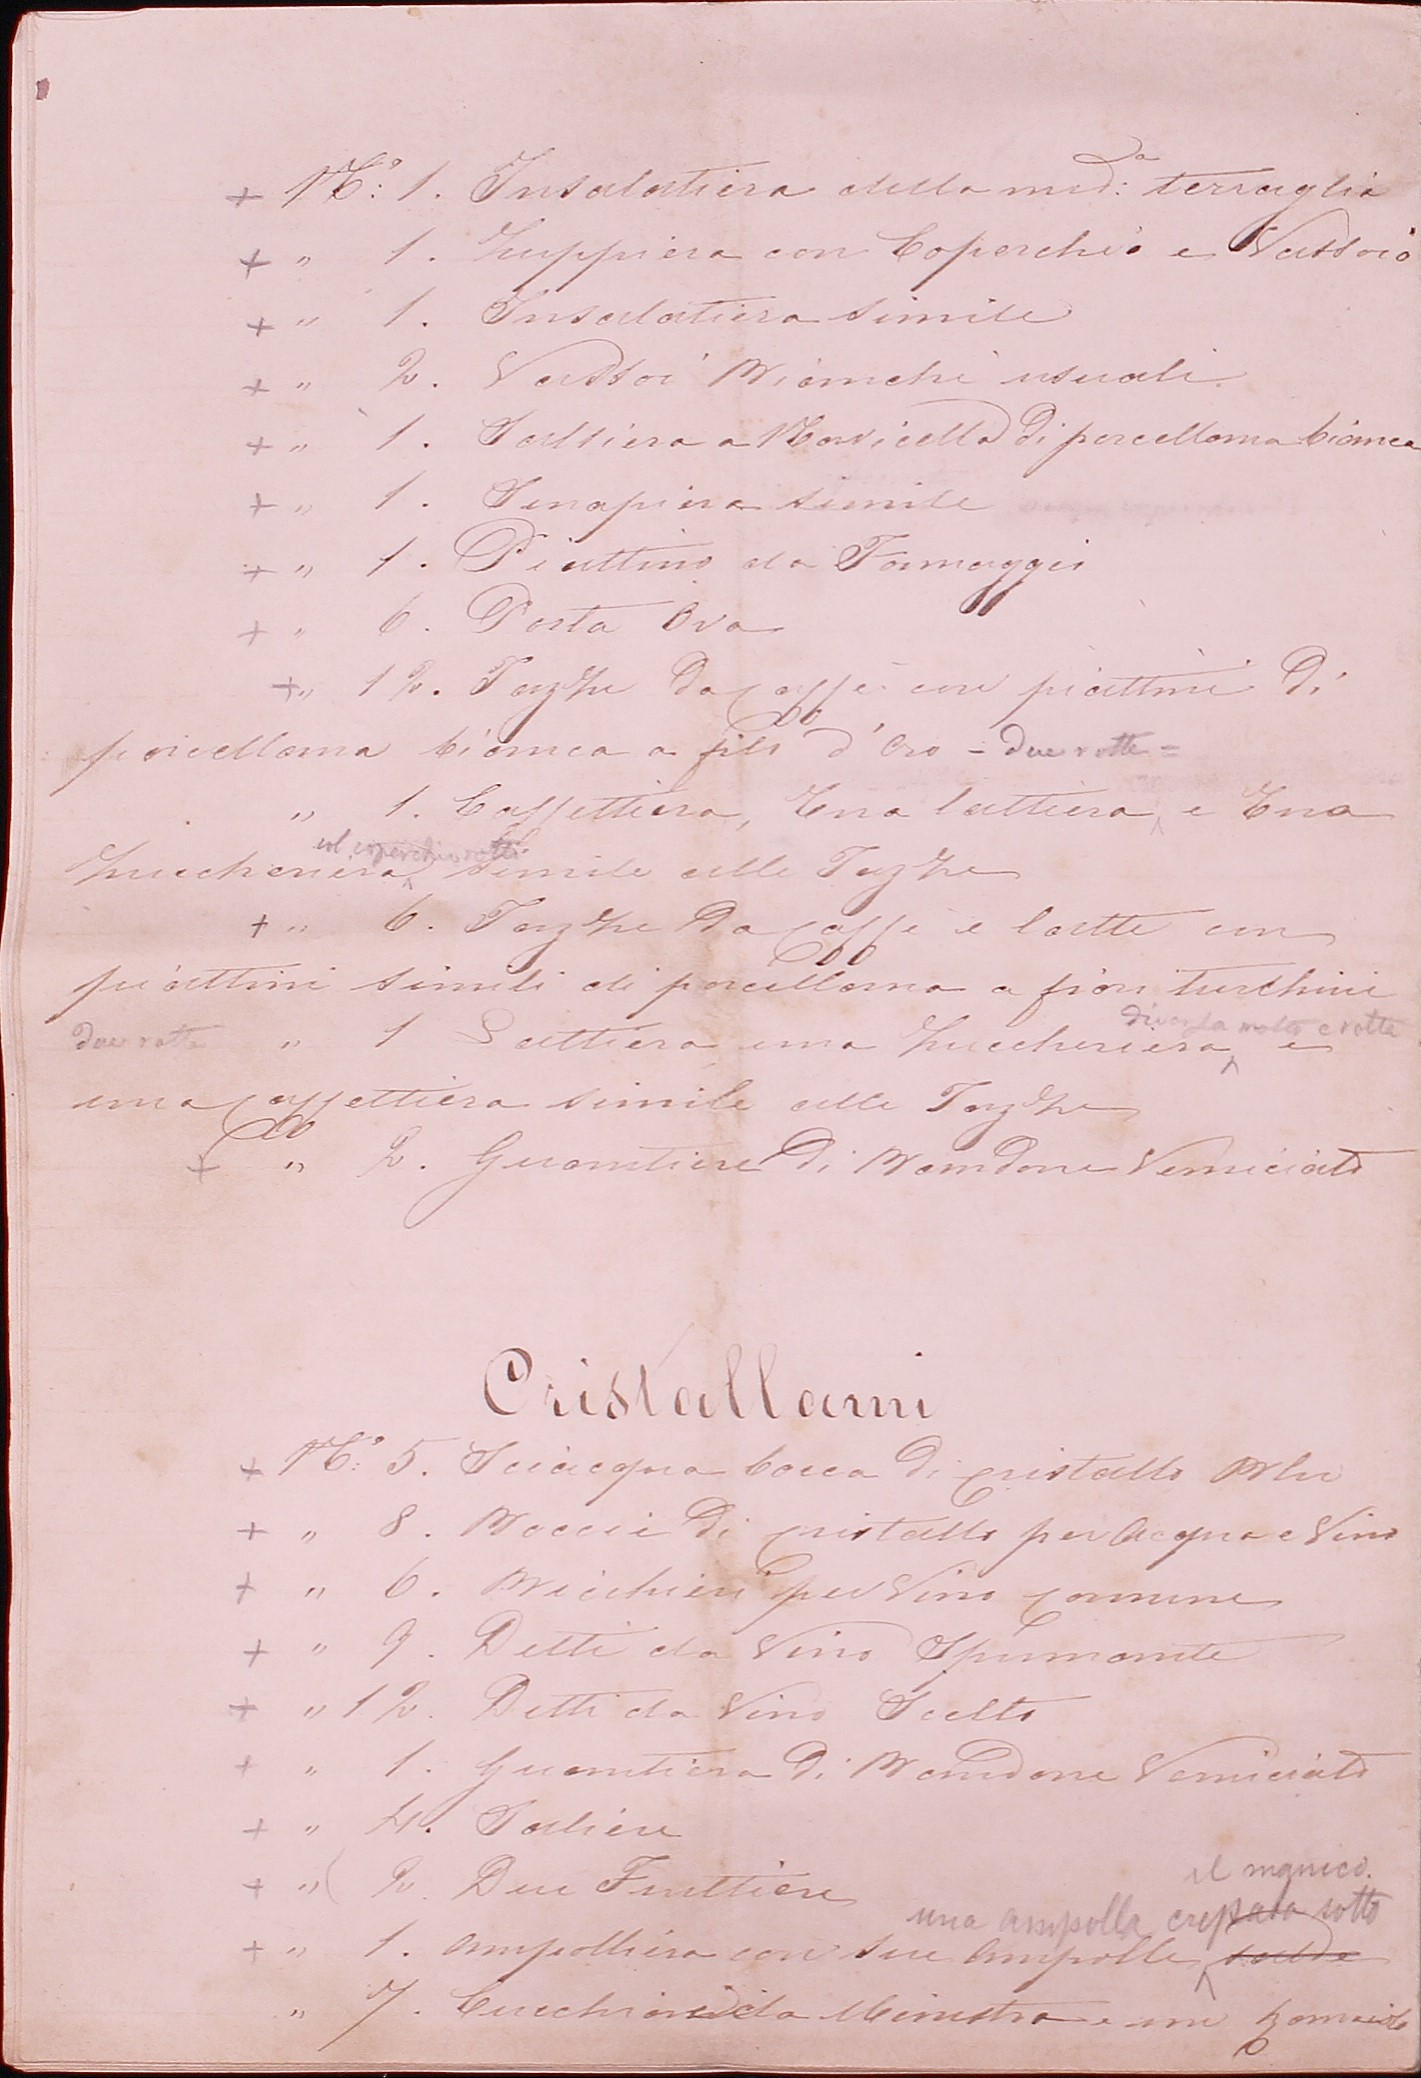 + N.º: 1. Insalatiera della med:ª terraglia
+ " 1. Zuppiera con Coperchio e Vassoio
+ " 1. Insalatiera simile
+ " 2. Vassoi Bianchi usuali.
+ " 1. Saltiera a Navicella di porcellana bianca
+ " 1. Senapiera simile
+ " 1. Piattino da Formaggio
+ " 6. Porta Ova
+ " 12. Tazze da Caffè con piattini di
porcellana bianca a filo d'Oro - due rotte =
" 1. Caffettiera, Una lattiera, e Una
col coperchio rotto
Zuccheriera simile alle Tazze
+ " 6. Tazze da Caffè e latte con
piattini simili di porcellana a fiori turchini
diversa molto e rotta
due rotte " 1 Lattiera una Zuccheriera e
una Caffettiera simile alle Tazze
+ " 2. Guantiere di Bandone Verniciato
Cristallami
+ N.º: 5. Sciacqua bocca di cristallo Blu
+ " 8. Boccie di cristallo per Acqua e Vino
+ " 6. Bicchieri per Vino comune
+ " 9. Detti da Vino Spumante
+ " 12. Detti da Vino Scelto
+ " 1. Guantiera di Bandone Verniciato
+ " 4. Saliere
+ " 2. Due Fruttiere
il manico.
una ampolla crepata sotto
+ " 1. Ampolliera con sue Ampolle salde
" 7. Cucchiai da Minestra e un Romaiolo